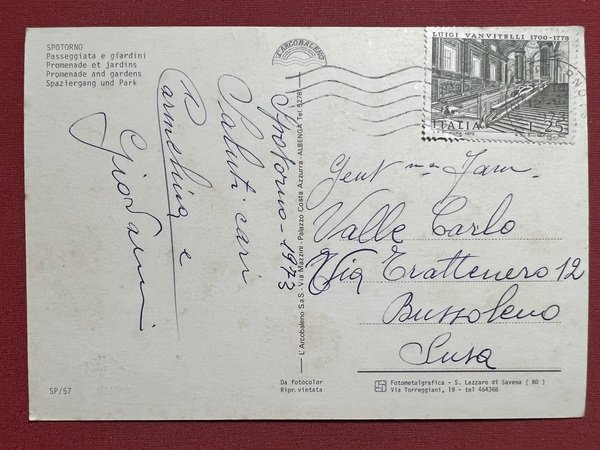 SPOTORNO
Passeggiata e giardini
Promenade et jardins
Promenade and gardens
Spaziergang und Park
L'ARCOBALENO
LUIGI VANVITELLI 1700-1773
ITALIA 25
Spotorno - 1973
Saluti cari
Carmelina e
Giovanni
L'Arcobaleno S a S - Via Mazzini - Palazzo Costa Azzurra - ALBENGA Tel. 5278
Gent ma Fam.
Valle Carlo
Via Trattenero 12
Bussoleno
Susa
SP/57
Da fotocolor
Ripr. vietata
Fotometalgrafica - S. Lazzaro di Savena ( BO )
Via Torreggiani, 19 - tel 464368